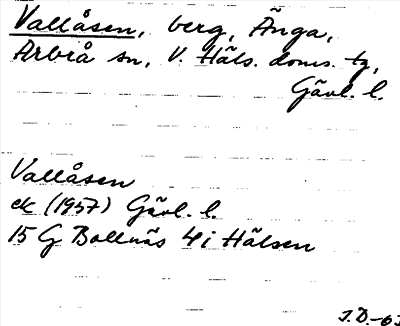 Vallåsen, berg, Änga,
Arbrå sn, V. Häls. doms. tg,
Gävl. l.
Vallåsen
ek (1957) Gävl. l.
15 G Bollnäs 4 i Hälsen
J.D.-63